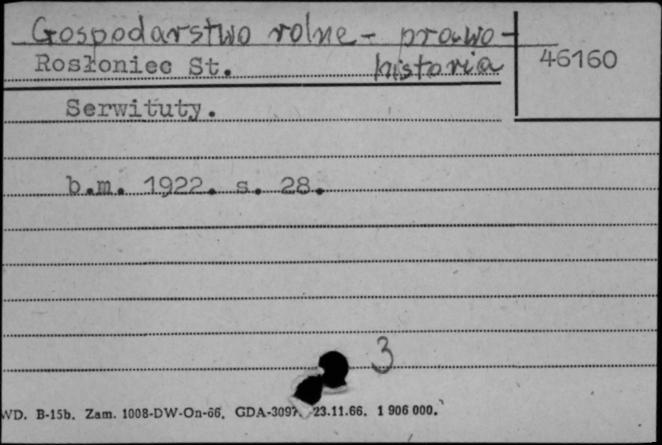 Gospodarstwo rolne - prawo -
Rosłoniec St. historia
46160
Serwituty.
b.m. 1922. s. 28.
3
WD. B-15b. Zam. 1008-DW-On-66. GDA-3097. 23.11.66. 1 906 000.